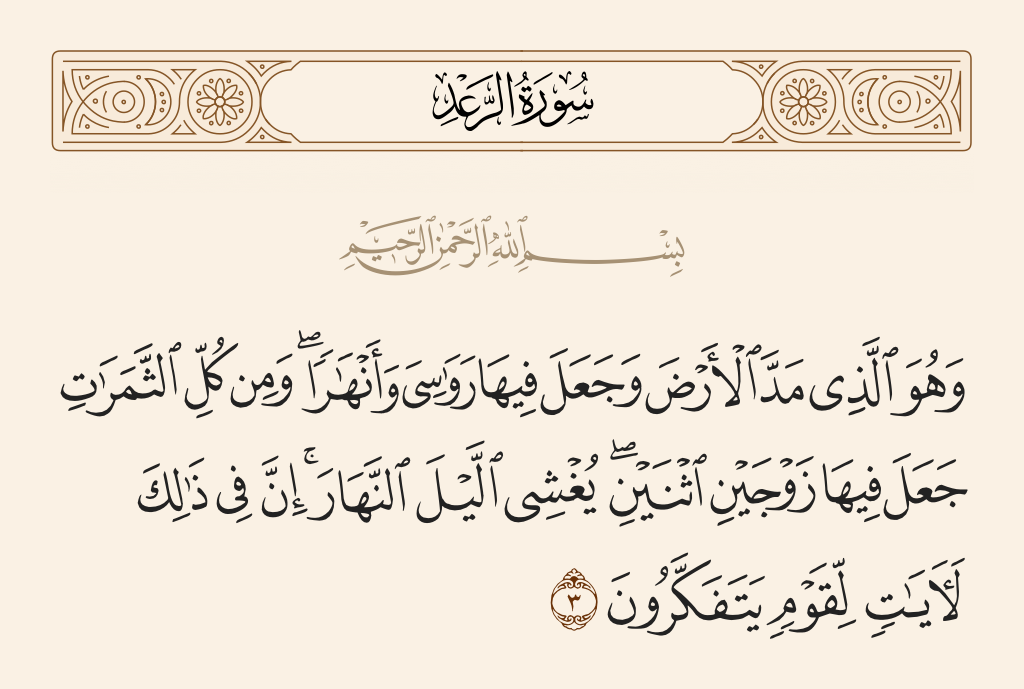 سُورَةُ الرَّعْدِ
بِسْمِ ٱللَّهِ ٱلرَّحْمَٰنِ ٱلرَّحِيمِ
وَهُوَ ٱلَّذِى مَدَّ ٱلْأَرْضَ وَجَعَلَ فِيهَا رَوَٰسِىَ وَأَنْهَٰرًا ۖ وَمِن كُلِّ ٱلثَّمَرَٰتِ
جَعَلَ فِيهَا زَوْجَيْنِ ٱثْنَيْنِ ۖ يُغْشِى ٱلَّيْلَ ٱلنَّهَارَ ۚ إِنَّ فِى ذَٰلِكَ
لَـَٔايَـٰتٍ لِّقَوْمٍ يَتَفَكَّرُونَ ٣